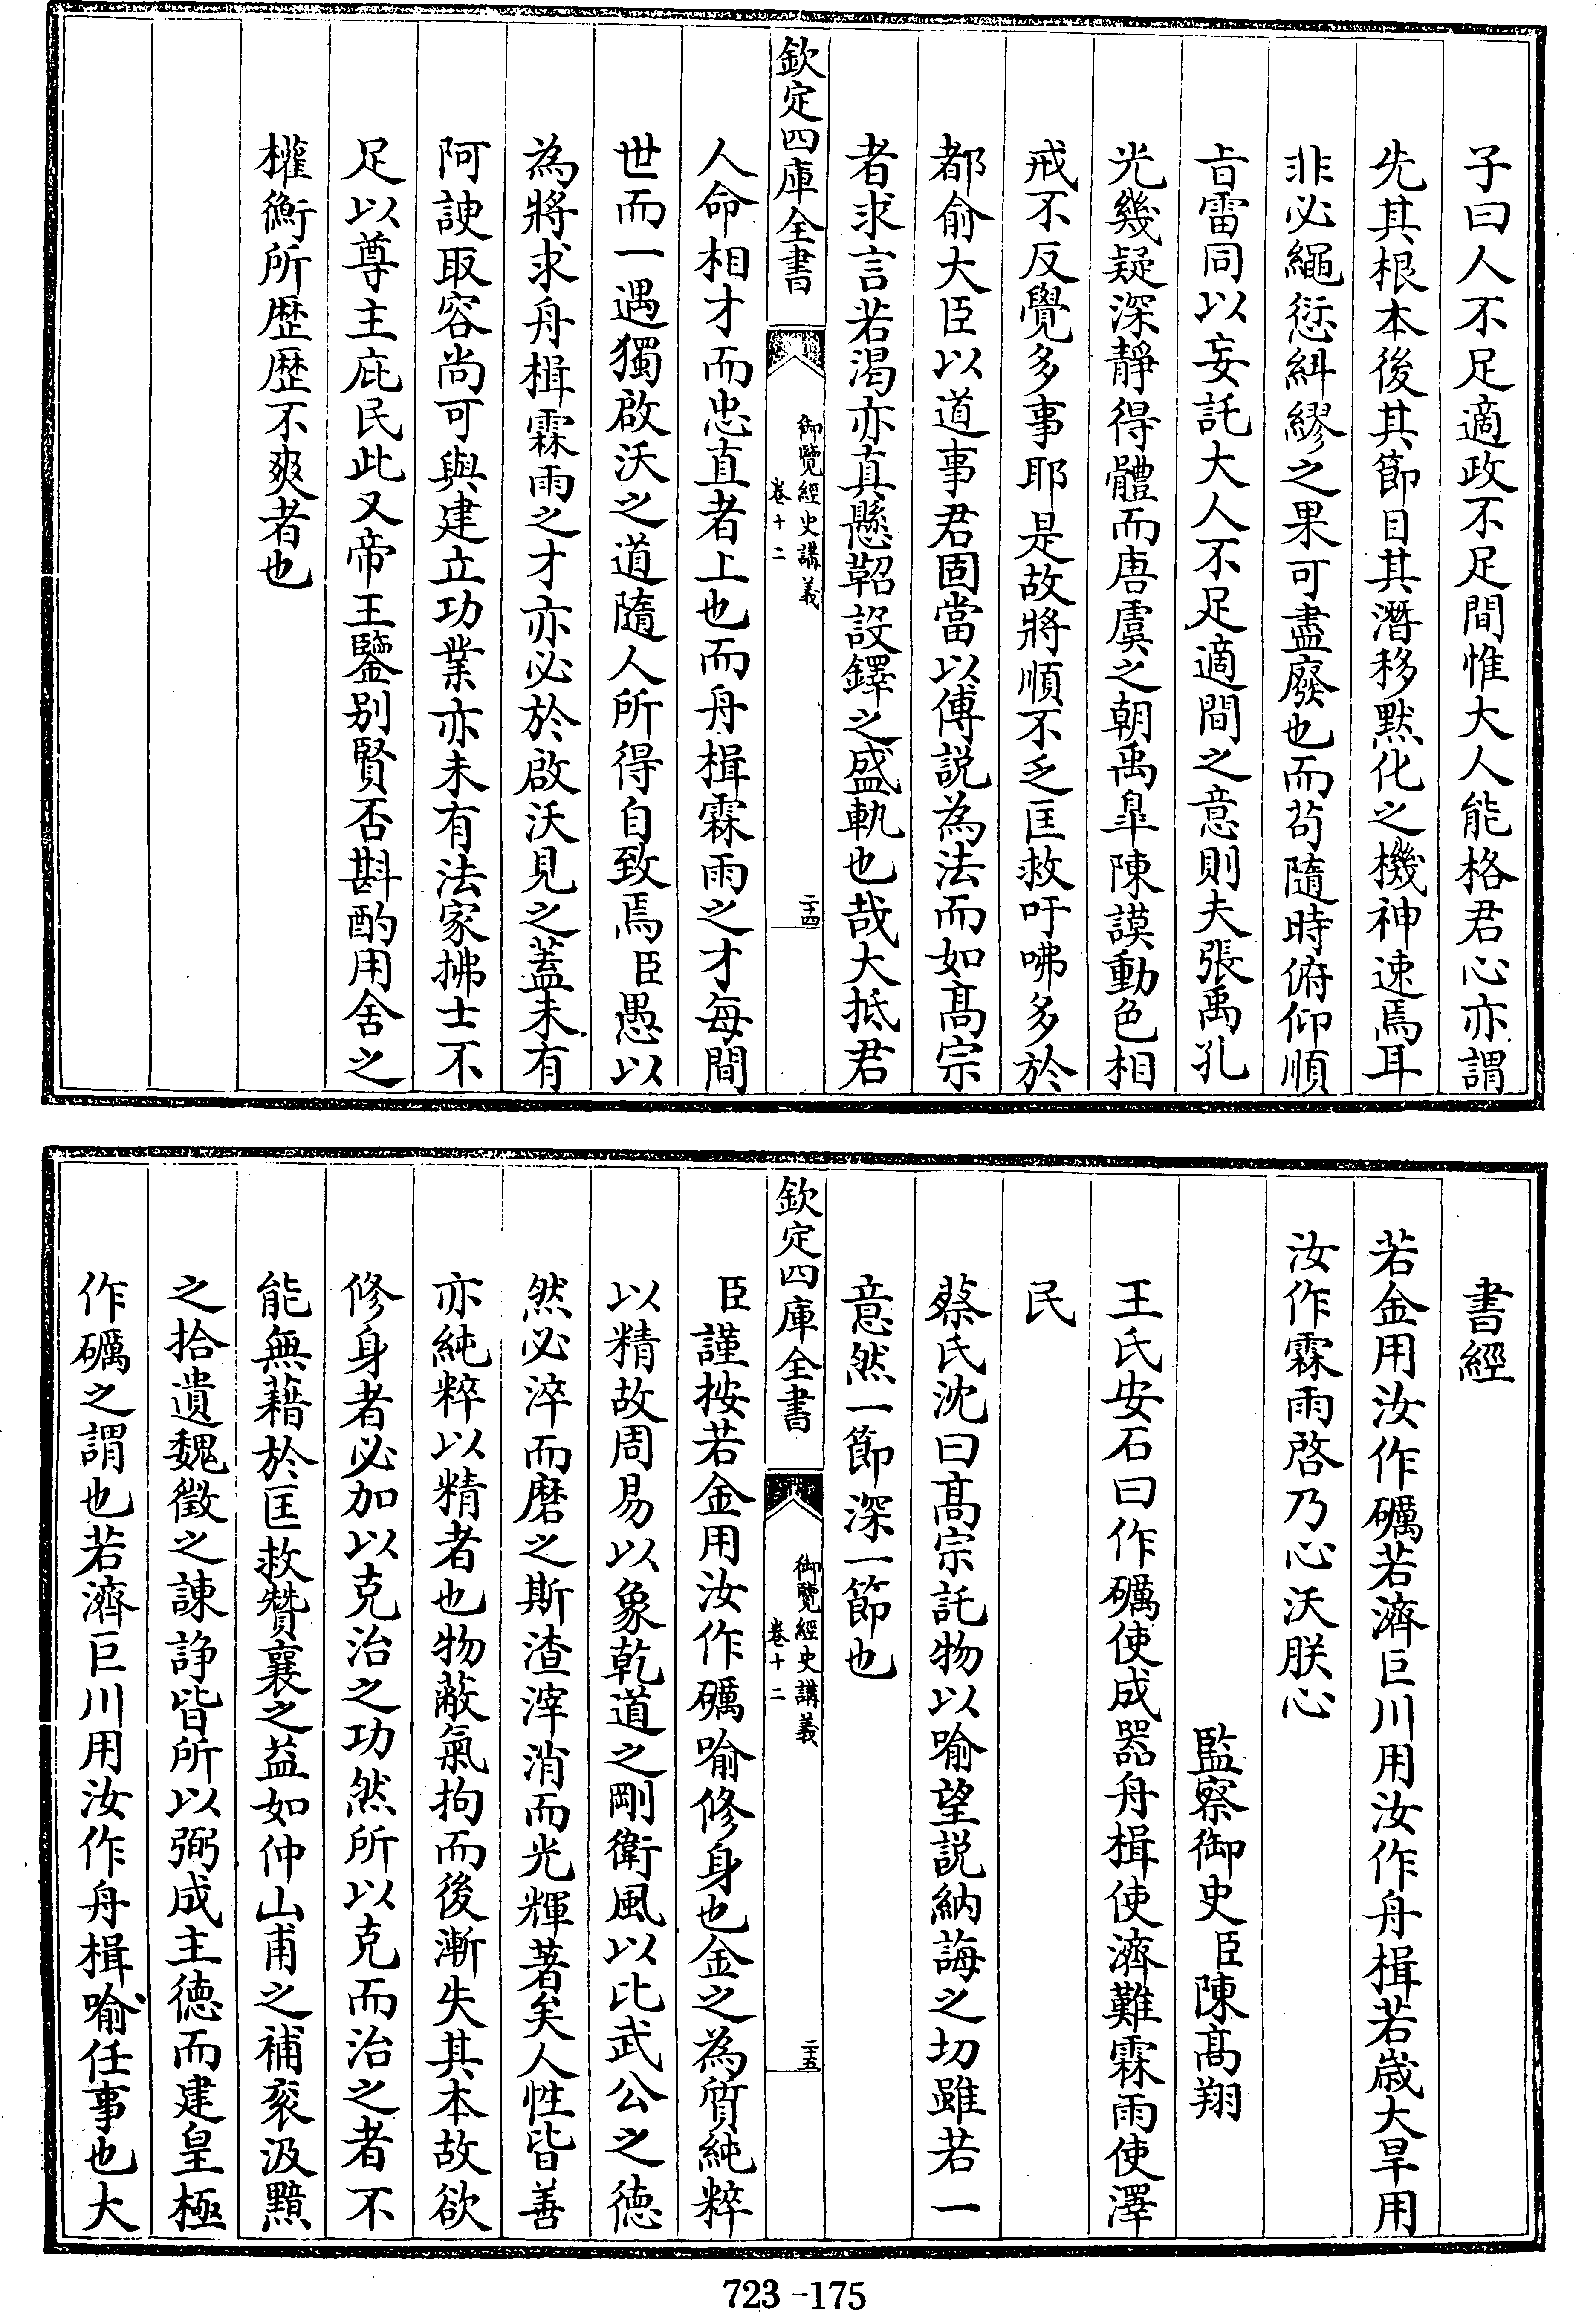 子曰人不足適政不足間惟大人能格君心亦謂
先其根本後其節目其潛移默化之機神速焉耳
非必繩愆糾繆之果可盡廢也而苟隨時俯仰順
㫖雷同以妄託大人不足適間之意則夫張禹孔
光幾疑深靜得體而唐虞之朝禹臯陳謨動色相
戒不反覺多事耶是故將順不乏匡救吁咈多於
都俞大臣以道事君固當以傅説為法而如髙宗
者求言若渴亦真懸鞀設鐸之盛軌也哉大抵君
欽定四庫全書
御覽經史講義
卷十二
二十四
人命相才而忠直者上也而舟楫霖雨之才每間
世而一遇獨啟沃之道隨人所得自致焉臣愚以
為將求舟楫霖雨之才亦必於啟沃見之蓋未有
阿諛取容尚可與建立功業亦未有法家拂士不
足以尊主庇民此又帝王鑒别賢否斟酌用舍之
權衡所歴歴不爽者也
書經
若金用汝作礪若濟巨川用汝作舟楫若嵗大旱用
汝作霖雨啓乃心沃朕心
監察御史臣陳髙翔
王氏安石曰作礪使成器舟楫使濟難霖雨使澤
民
蔡氏沈曰髙宗託物以喻望説納誨之切雖若一
意然一節深一節也
欽定四庫全書
御覽經史講義
卷十二
二十五
臣謹按若金用汝作礪喻修身也金之為質純粹
以精故周易以象乾道之剛衛風以比武公之徳
然必淬而磨之斯渣滓消而光輝著矣人性皆善
亦純粹以精者也物蔽氣拘而後漸失其本故欲
修身者必加以克治之功然所以克而治之者不
能無藉於匡救贊襄之益如仲山甫之補衮汲黯
之拾遺魏徵之諫諍皆所以弼成主徳而建皇極
作礪之謂也若濟巨川用汝作舟楫喻任事也大
723-175